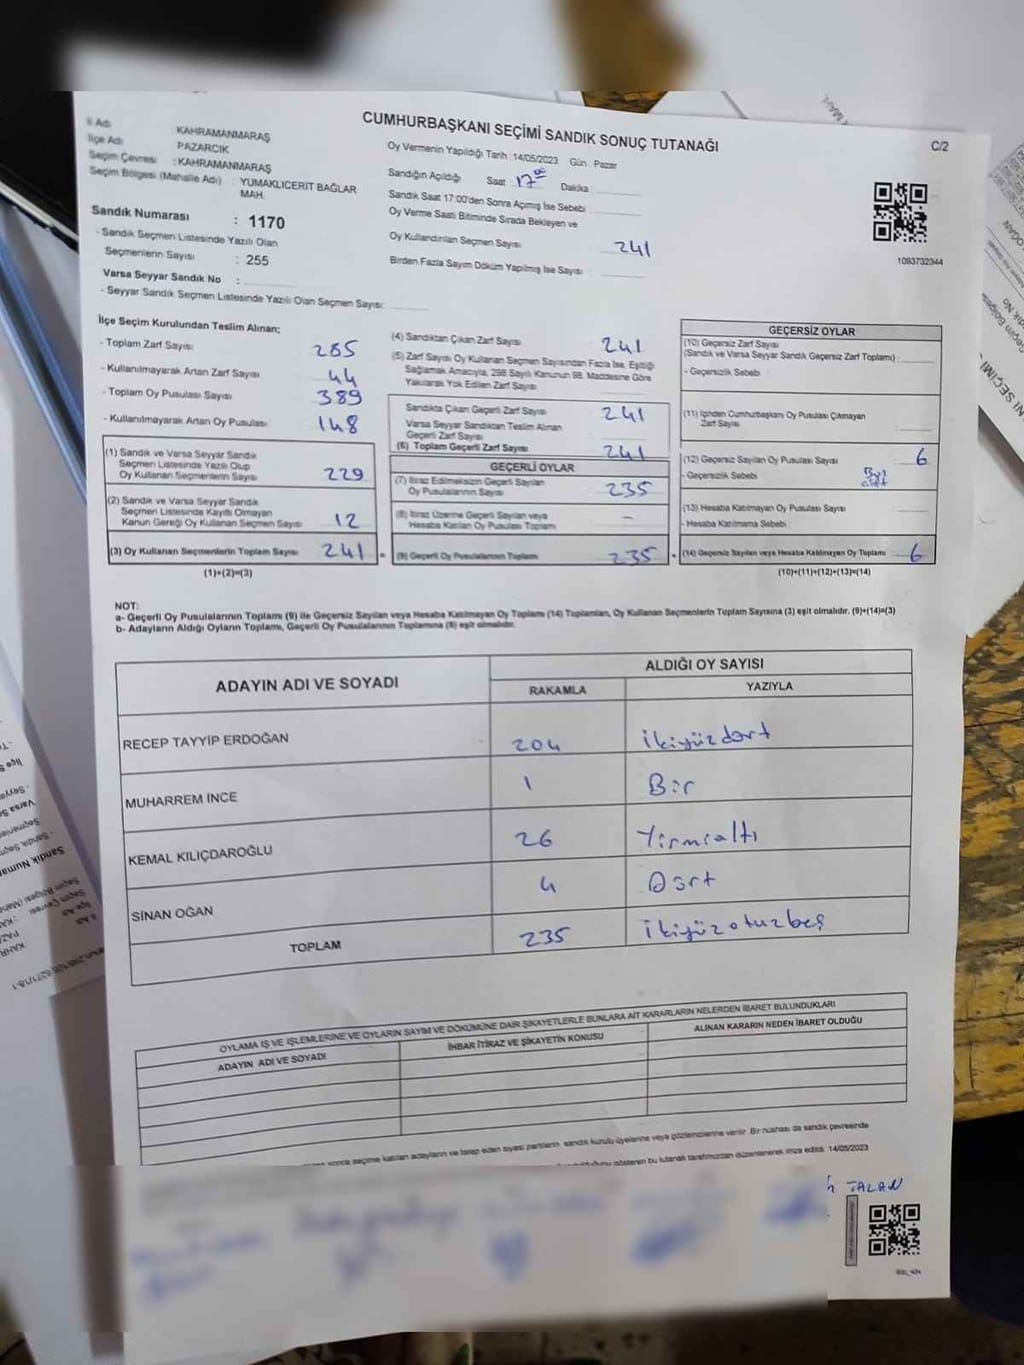 CUMHURBAŞKANI SEÇİMİ SANDIK SONUÇ TUTANAĞI
C/2
İl Adı KAHRAMANMARAŞ
İlçe Adı PAZARCIK
Seçim Çevresi : KAHRAMANMARAŞ
Seçim Bölgesi (Mahalle Adı) : YUMAKLICERIT BAĞLAR
MAH.
Sandık Numarası : 1170
- Sandık Seçmen Listesinde Yazılı Olan
Seçmenlerin Sayısı : 255
Varsa Seyyar Sandık No :
- Seyyar Sandık Seçmen Listesinde Yazılı Olan Seçmen Sayısı:
Oy Vermenin Yapıldığı Tarih 14/05/2023 Gün Pazar
Sandığın Açıldığı Saat 17 00 Dakika
Sandık Saat 17:00'den Sonra Açımış İse Sebebi :
Oy Verme Saati Bitiminde Sırada Bekleyen ve
Oy Kullandırılan Seçmen Sayısı 241
Birden Fazla Sayım Döküm Yapılmış İse Sayısı :
1093732344
İlçe Seçim Kurulundan Teslim Alınan;
- Toplam Zarf Sayısı 285
- Kullanılmayarak Artan Zarf Sayısı 44
- Toplam Oy Pusulası Sayısı 389
- Kullanılmayarak Artan Oy Pusulası 148
(1) Sandık ve Varsa Seyyar Sandık
Seçmen Listesinde Yazılı Olup
Oy Kullanan Seçmenlerin Sayısı 229
(2) Sandık ve Varsa Seyyar Sandık
Seçmen Listesinde Kayıtlı Olmayan
Kanun Gereği Oy Kullanan Seçmen Sayısı 12
(3) Oy Kullanan Seçmenlerin Toplam Sayısı 241 =
(1)+(2)=(3)
(4) Sandıktan Çıkan Zarf Sayısı 241
(5) Zarf Sayısı Oy Kullanan Seçmen Sayısından Fazla İse, Eşitliği
Sağlamak Amacıyla, 298 Sayılı Kanunun 98. Maddesine Göre
Yakılarak Yok Edilen Zarf Sayısı
Sandıkta Çıkan Geçerli Zarf Sayısı 241
Varsa Seyyar Sandıktan Teslim Alınan
Geçerli Zarf Sayısı
(6) Toplam Geçerli Zarf Sayısı 241
GEÇERLİ OYLAR
(7) İtiraz Edilmeksizin Geçerli Sayılan
Oy Pusulalarının Sayısı 235
(8) İtiraz Üzerine Geçerli Sayılan veya
Hesaba Katılan Oy Pusulası Toplamı –
(9) Geçerli Oy Pusulalarının Toplamı 235 +
GEÇERSİZ OYLAR
(10) Geçersiz Zarf Sayısı
(Sandık ve Varsa Seyyar Sandık Geçersiz Zarf Toplamı) :
- Geçersizlik Sebebi
(11) İçinden Cumhurbaşkanı Oy Pusulası Çıkmayan
Zarf Sayısı :
(12) Geçersiz Sayılan Oy Pusulası Sayısı 6
- Geçersizlik Sebebi
(13) Hesaba Katılmayan Oy Pusulası Sayısı :
- Hesaba Katılmama Sebebi :
(14) Geçersiz Sayılan veya Hesaba Katılmayan Oy Toplamı 6
(10)+(11)+(12)+(13)=(14)
NOT:
a- Geçerli Oy Pusulalarının Toplamı (9) ile Geçersiz Sayılan veya Hesaba Katılmayan Oy Toplamı (14) Toplamları, Oy Kullanan Seçmenlerin Toplam Sayısına (3) eşit olmalıdır. (9)+(14)=(3)
b- Adayların Aldığı Oyların Toplamı, Geçerli Oy Pusulalarının Toplamına (9) eşit olmalıdır.
ADAYIN ADI VE SOYADI ALDIĞI OY SAYISI
RAKAMLA YAZIYLA
RECEP TAYYİP ERDOĞAN 204 ikiyüzdört
MUHARREM İNCE 1 Bir
KEMAL KILIÇDAROĞLU 26 Yirmialtı
SİNAN OĞAN 4 Dört
TOPLAM 235 ikiyüzotuzbeş
OYLAMA İŞ VE İŞLEMLERİNE VE OYLARIN SAYIM VE DÖKÜMÜNE DAİR ŞİKAYETLERLE BUNLARA AİT KARARLARIN NELERDEN İBARET BULUNDUKLARI
ADAYIN ADI VE SOYADI İHBAR İTİRAZ VE ŞİKAYETİN KONUSU ALINAN KARARIN NEDEN İBARET OLDUĞU
sonra seçime katılan adayların ve talep eden siyasi partilerin sandık kurulu üyelerine veya gözlemcilerine verilir. Bir nüshası da sandık çevresinde
gösteren bu tutanak tarafımızdan düzenlenerek imza edildi. 14/05/2023
TALAN